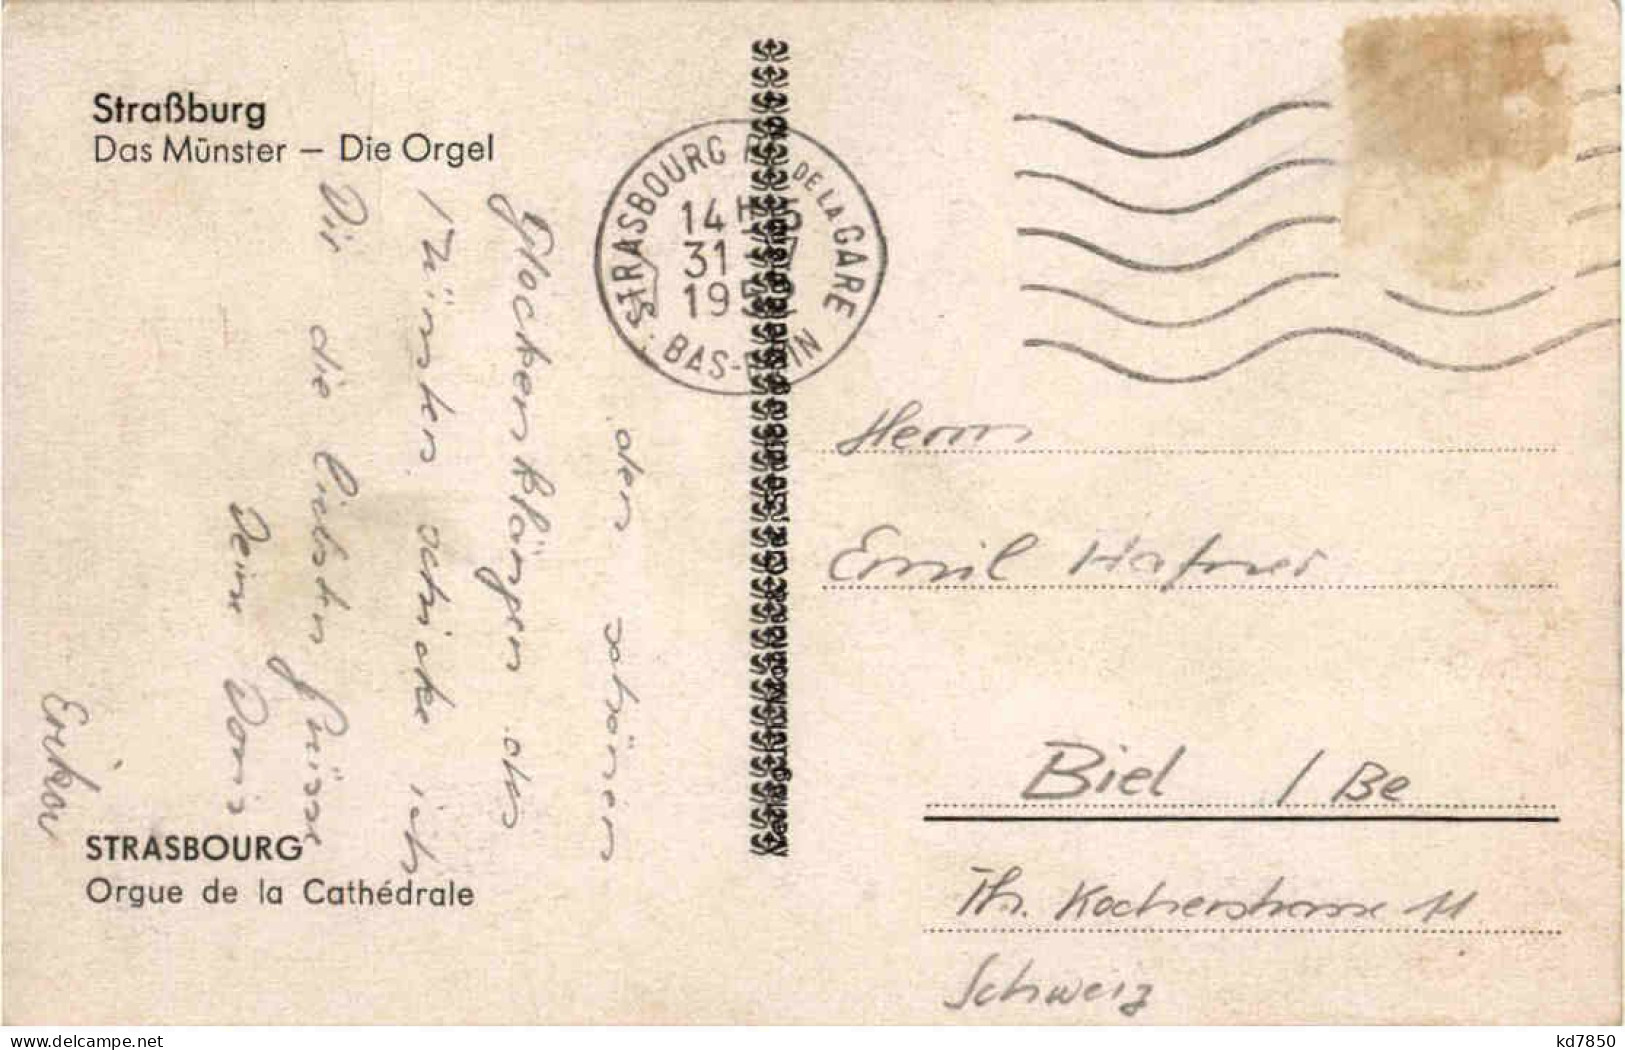 Straßburg
Das Münster – Die Orgel
STRASBOURG
DE LA GARE
14 H
31
19
BAS-
den schönen
Glockenklängen des
Münsters schicke ich
Dir die liebsten Grüsse
Dein Doris
Herrn
Emil Hafner
Biel / Be
Th. Kocherstrasse 11
Schweiz
STRASBOURG
Orgue de la Cathédrale
kd7850